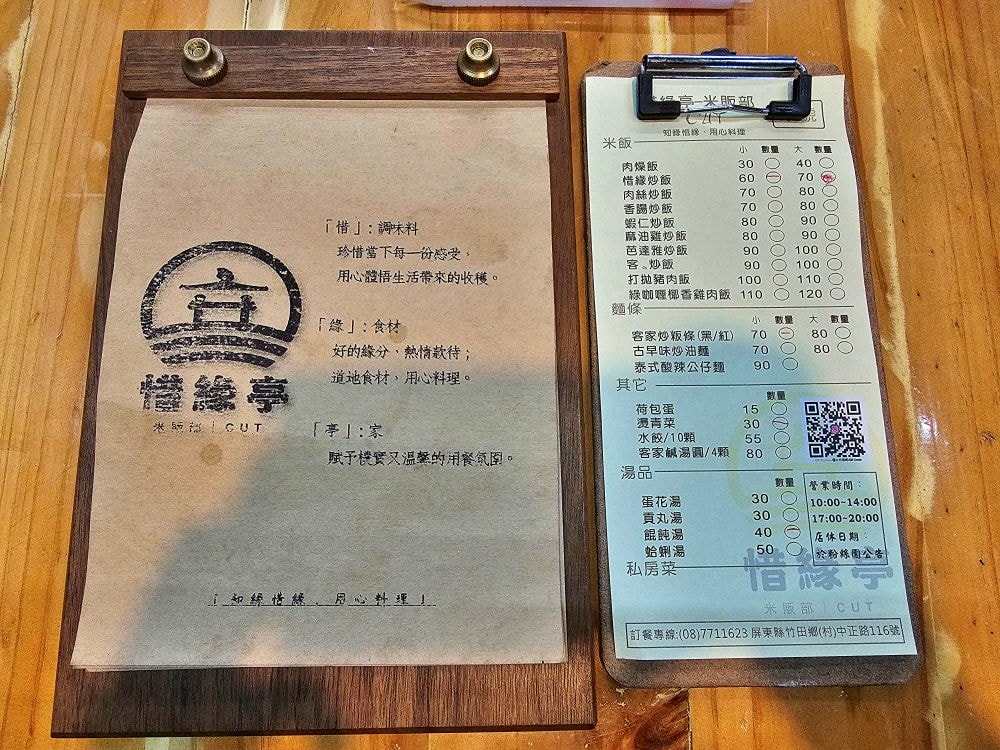 「惜」：調味料
珍惜當下每一份感受，
用心體悟生活帶來的收穫。
「緣」：食材
好的緣分，熱情款待；
道地食材，用心料理。
「亭」：家
賦予樸實又溫馨的用餐氛圍。
惜緣亭
米飯部 | CUT
「知緣惜緣．用心料理」
緣亭-米飯部
CUT
號
知緣惜緣．用心料理
米飯
小 數量 大 數量
肉燥飯 30 40
惜緣炒飯 60 70
肉絲炒飯 70 80
香腸炒飯 70 80
蝦仁炒飯 80 90
麻油雞炒飯 80 90
芭達雅炒飯 90 100
客 炒飯 90 100
打拋豬肉飯 100 110
綠咖喱椰香雞肉飯 110 120
麵條
小 數量 大 數量
客家炒粄條(黑/紅) 70 80
古早味炒油麵 70 80
泰式酸辣公仔麵 90
其它
數量
荷包蛋 15
燙青菜 30
水餃/10顆 55
客家鹹湯圓/4顆 80
湯品
數量
蛋花湯 30
貢丸湯 30
餛飩湯 40
蛤蜊湯 50
私房菜
營業時間：
10:00~14:00
17:00~20:00
店休日期：
於粉絲團公告
惜緣亭
米飯部 | CUT
訂餐專線:(08)7711623 屏東縣竹田鄉(村)中正路116號